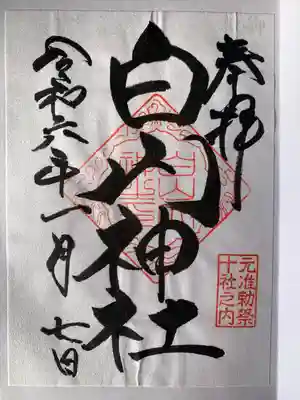 奉拝
元准勅祭
十社之内
白山神社
令和六年一月七日